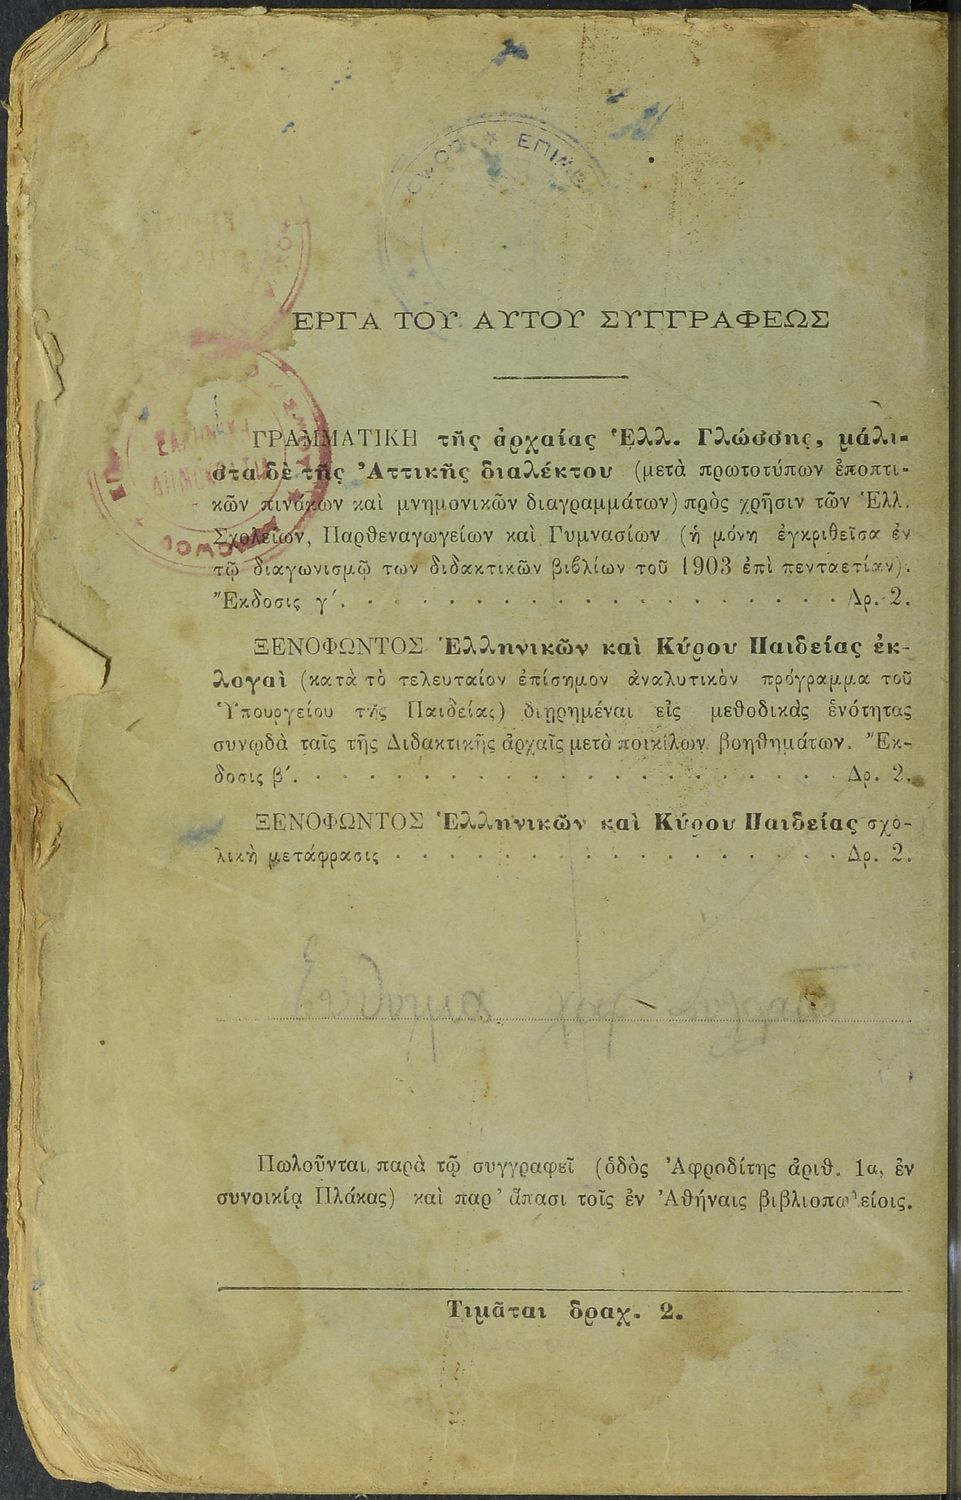 ΕΡΓΑ ΤΟΥ ΑΥΤΟΥ ΣΥΓΓΡΑΦΕΩΣ
ΓΡΑΜΜΑΤΙΚΗ τῆς ἀρχαίας Ἑλλ. Γλώσσης, μάλι-
στα δὲ τῆς Ἀττικῆς διαλέκτου (μετὰ πρωτοτύπων ἐποπτι-
κῶν πινάκων καὶ μνημονικῶν διαγραμμάτων) πρὸς χρῆσιν τῶν Ἑλλ.
Σχολείων, Παρθεναγωγείων καὶ Γυμνασίων (ἡ μόνη ἐγκριθεῖσα ἐν
τῷ διαγωνισμῷ των διδακτικῶν βιβλίων τοῦ 1903 ἐπὶ πενταετίαν).
Ἔκδοσις γ΄. . . . . . . . . . . . . . . . . . . Δρ. 2.
ΞΕΝΟΦΩΝΤΟΣ Ἑλληνικῶν καὶ Κύρου Παιδείας ἐκ-
λογαὶ (κατὰ τὸ τελευταίον ἐπίσημον ἀναλυτικὸν πρόγραμμα τοῦ
Ὑπουργείου τῆς Παιδείας) διῃρημέναι εἰς μεθοδικὰς ἑνότητας
συνῳδὰ ταῖς τῆς Διδακτικῆς ἀρχαῖς μετὰ ποικίλων βοηθημάτων. Ἔκ-
δοσις β΄. . . . . . . . . . . . . . . . . . . . Δρ. 2.
ΞΕΝΟΦΩΝΤΟΣ Ἑλληνικῶν καὶ Κύρου Παιδείας σχο-
λικὴ μετάφρασις . . . . . . . . . . . . . . . . Δρ. 2.
Πωλοῦνται, παρὰ τῷ συγγραφεῖ (ὁδὸς Ἀφροδίτης ἀριθ. 1α, ἐν
συνοικίᾳ Πλάκας) καὶ παρ' ἅπασι τοῖς ἐν Ἀθήναις βιβλιοπωλείοις.
Τιμᾶται δραχ. 2.